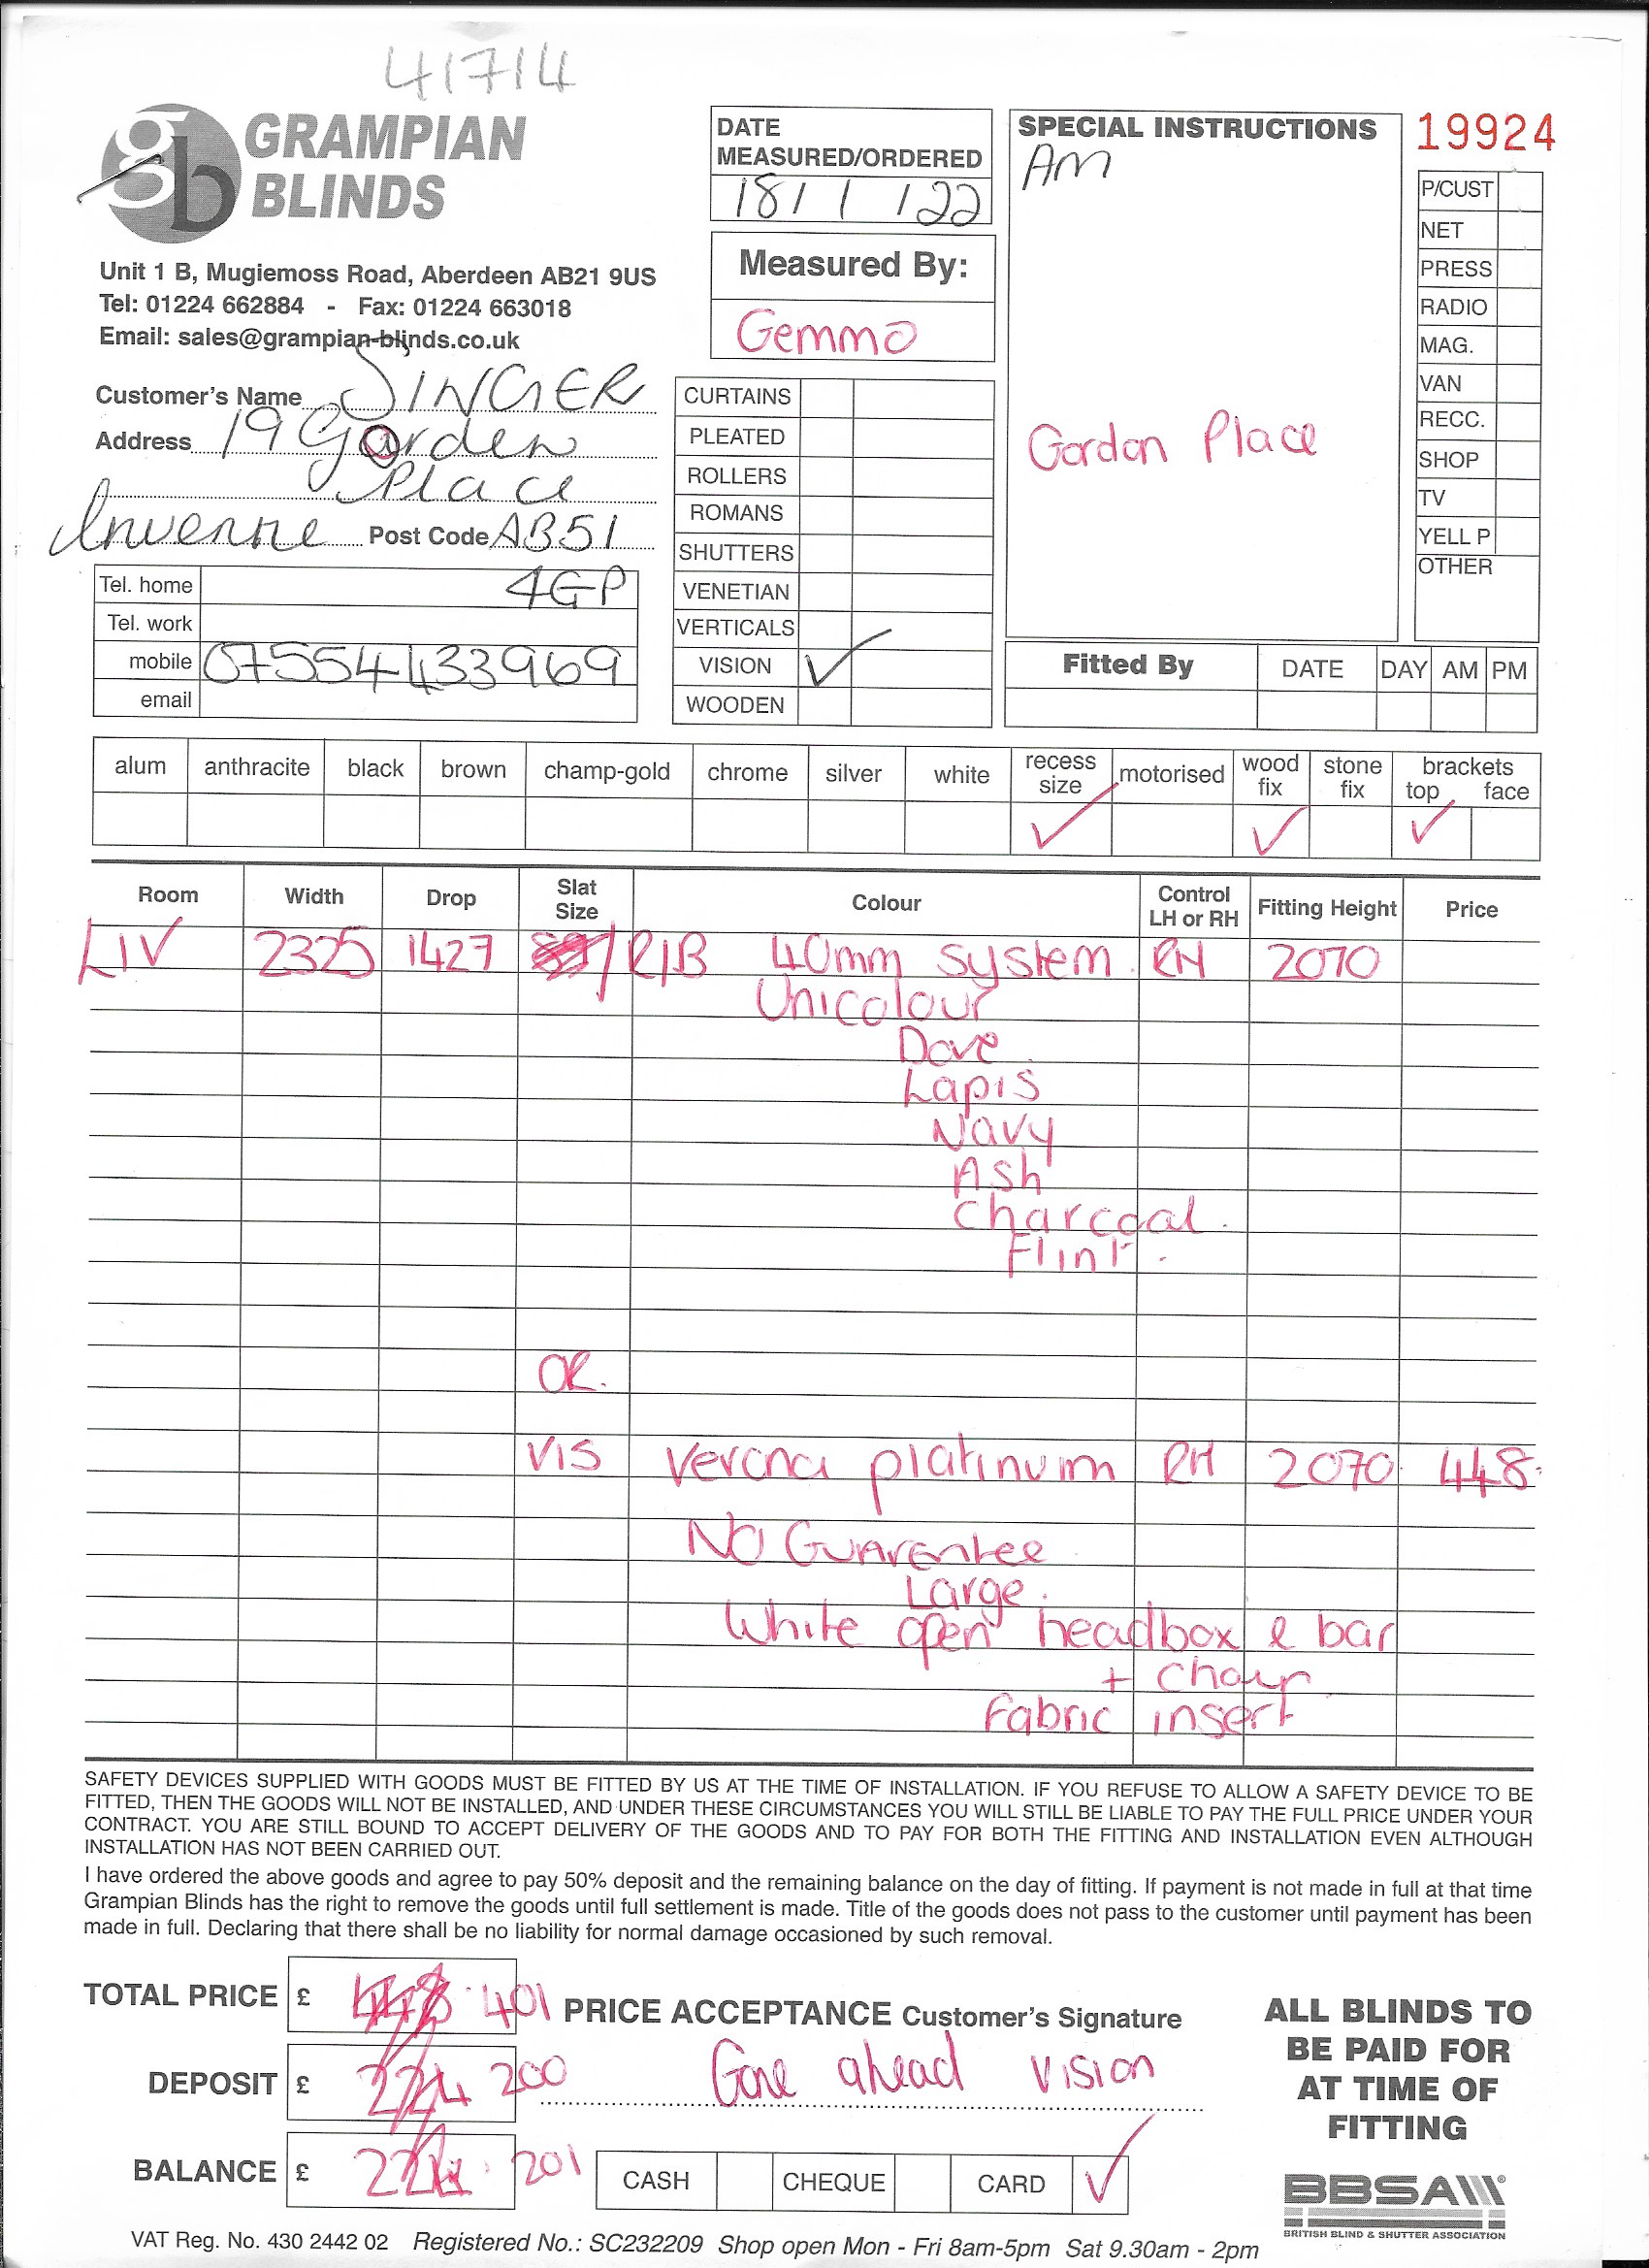 41714
gb GRAMPIAN BLINDS
Unit 1 B, Mugiemoss Road, Aberdeen AB21 9US
Tel: 01224 662884 - Fax: 01224 663018
Email: sales@grampian-blinds.co.uk
Customer's Name SINGER
Address 19 Garden
Place
Post Code AB51
4GP
Tel. home
Tel. work
mobile 07554433969
email
DATE
MEASURED/ORDERED
18/1/22
Measured By:
Gemma
CURTAINS
PLEATED
ROLLERS
ROMANS
SHUTTERS
VENETIAN
VERTICALS
VISION ✓
WOODEN
SPECIAL INSTRUCTIONS
AM
Gordon Place
19924
P/CUST
NET
PRESS
RADIO
MAG.
VAN
RECC.
SHOP
TV
YELL P
OTHER
Fitted By DATE DAY AM PM
alum anthracite black brown champ-gold chrome silver white recess size ✓ motorised wood fix ✓ stone fix brackets top ✓ face
Room Width Drop Slat Size Colour Control LH or RH Fitting Height Price
LIV 2325 1427 R/B 40mm system RH 2070
Unicolour
Dove
Lapis
Navy
Ash
Charcoal.
Flint.
OR.
VIS Verona platinum RH 2070 448
NO Guarentee
Large.
White open headbox & bar
+ Chain
Fabric insert
SAFETY DEVICES SUPPLIED WITH GOODS MUST BE FITTED BY US AT THE TIME OF INSTALLATION. IF YOU REFUSE TO ALLOW A SAFETY DEVICE TO BE
FITTED, THEN THE GOODS WILL NOT BE INSTALLED, AND UNDER THESE CIRCUMSTANCES YOU WILL STILL BE LIABLE TO PAY THE FULL PRICE UNDER YOUR
CONTRACT. YOU ARE STILL BOUND TO ACCEPT DELIVERY OF THE GOODS AND TO PAY FOR BOTH THE FITTING AND INSTALLATION EVEN ALTHOUGH
INSTALLATION HAS NOT BEEN CARRIED OUT.
I have ordered the above goods and agree to pay 50% deposit and the remaining balance on the day of fitting. If payment is not made in full at that time
Grampian Blinds has the right to remove the goods until full settlement is made. Title of the goods does not pass to the customer until payment has been
made in full. Declaring that there shall be no liability for normal damage occasioned by such removal.
TOTAL PRICE £ 448 401 PRICE ACCEPTANCE Customer's Signature
DEPOSIT £ 224 200 Gone ahead vision
BALANCE £ 224 201 CASH CHEQUE CARD ✓
ALL BLINDS TO
BE PAID FOR
AT TIME OF
FITTING
BBSA
BRITISH BLIND & SHUTTER ASSOCIATION
VAT Reg. No. 430 2442 02 Registered No.: SC232209 Shop open Mon - Fri 8am-5pm Sat 9.30am - 2pm